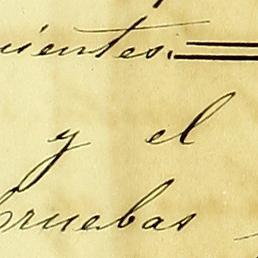 uientes.
y el
pruebas